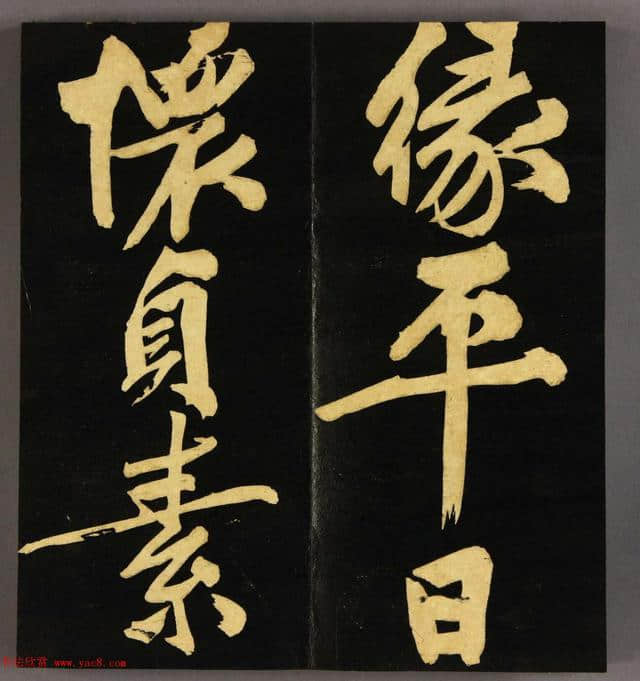 緣平日
懷貞素
书法欣赏 www.yac8.com